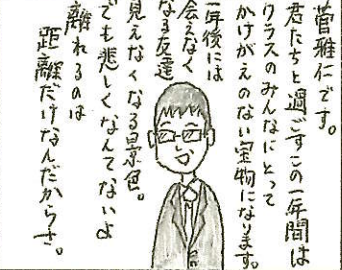 菅雅仁です。
君たちと過ごすこの一年間は
クラスのみんなにとって
かけがえのない宝物になります。
一年後には
会えなく
なる友達
見えなくなる景色。
でも悲しくなんてないよ
離れるのは
距離だけなんだからさ。